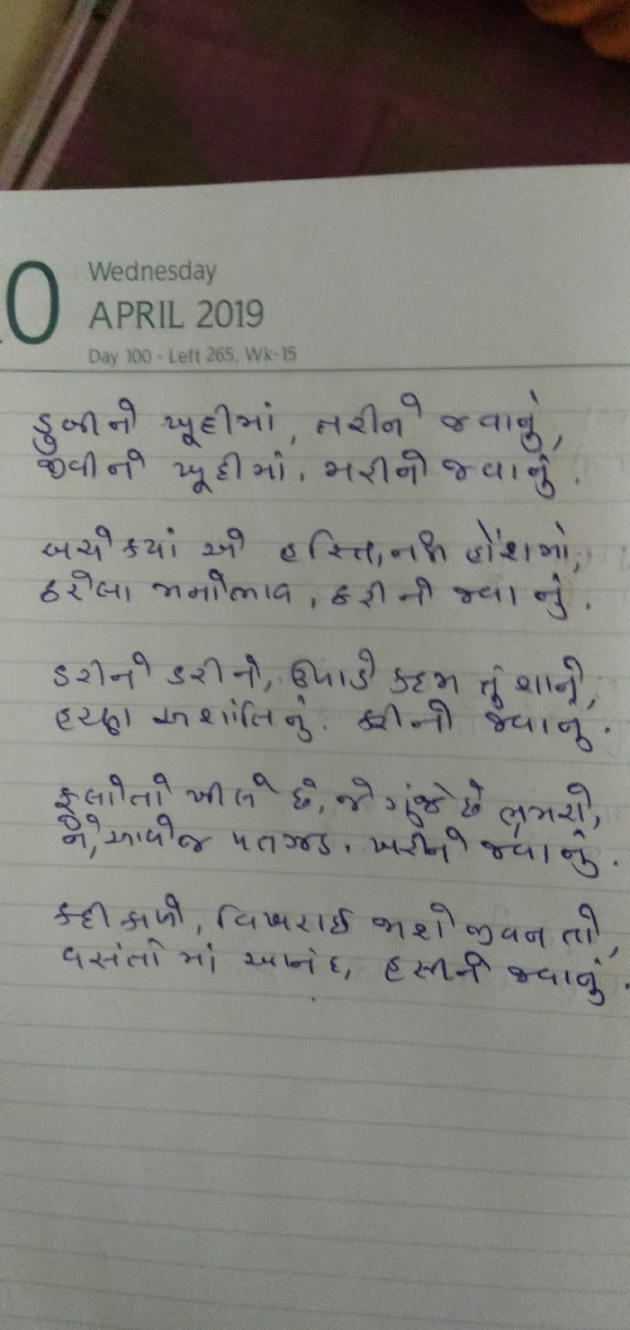 0
Wednesday
APRIL 2019
Day 100 - Left 265, Wk-15
ડુબીને ખૂદીમાં, તરીને જવાનું,
જીવીને ખૂદીમાં, મરીને જવાનું.
બચે ક્યાં એ હસ્તિ, હોંશમાં,
ઠરેલા જમેલાવ, ઠરીને જવાનું.
ડરીને ડરીને, ઉપાડે કદમ તું શાને,
અશાંતિનું. ફરીને જવાનું.
ફુલોતો ખીલે છે, જે ગુંજે છે ભ્રમરો,
ને, આવેજ પતઝડ, ખરીને જવાનું.
કદી કાળે, વિખરાઈ જાશે જીવન તો,
વસંતો માં આનંદ, હસીને જવાનું.